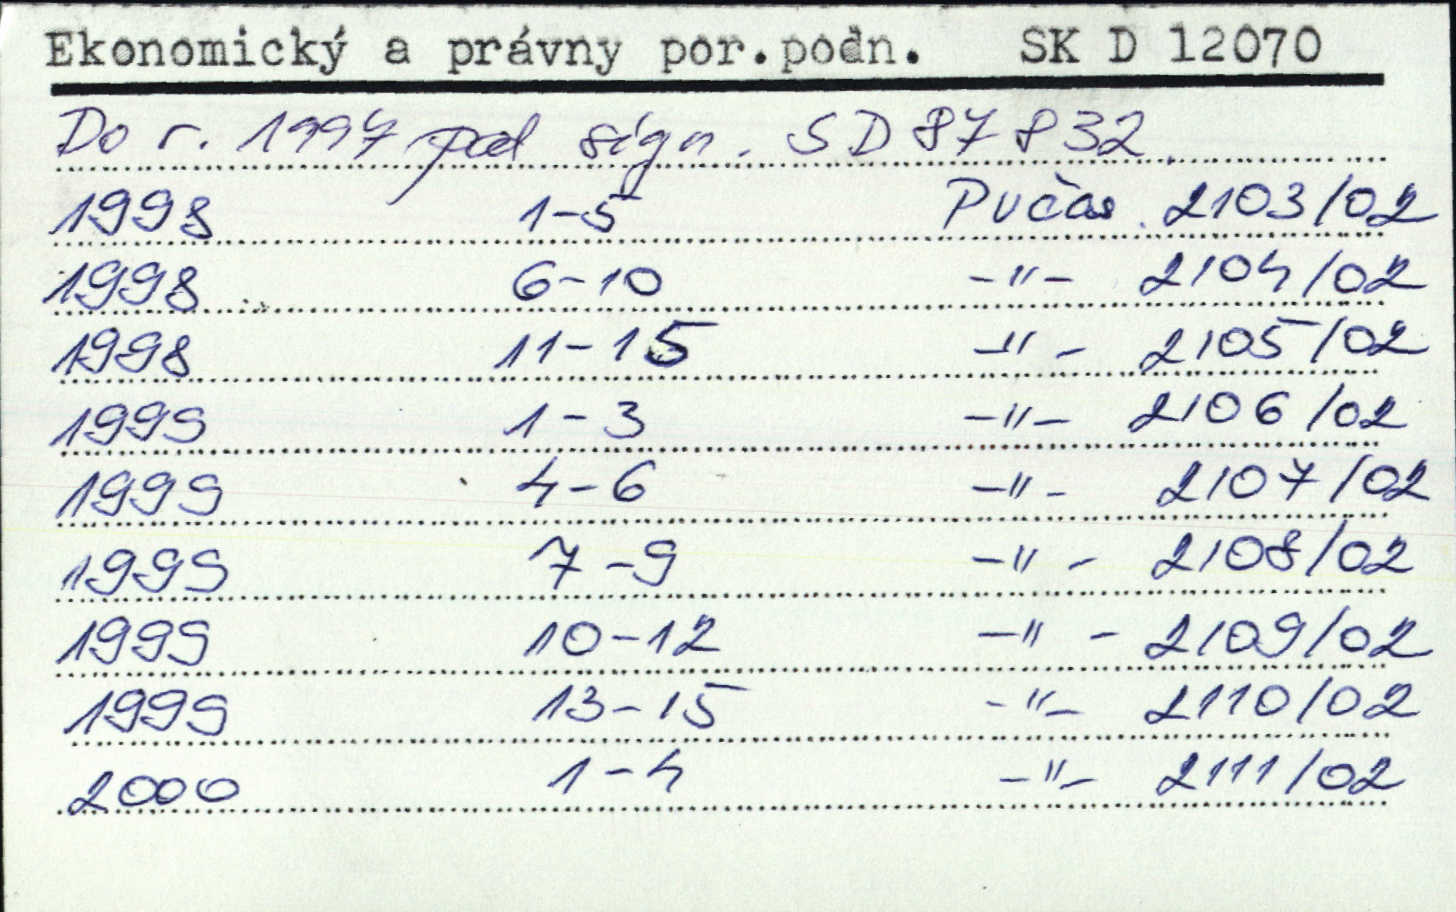 Ekonomický a právny por.podn. SK D 12070
Do r. 1997 pod sign. SD 87832
1998 1-5 Pučas. 2103/02
1998 6-10 -"- 2104/02
1998 11-15 -"- 2105/02
1999 1-3 -"- 2106/02
1999 4-6 -"- 2107/02
1999 7-9 -"- 2108/02
1999 10-12 -"- 2109/02
1999 13-15 -"- 2110/02
2000 1-4 -"- 2111/02